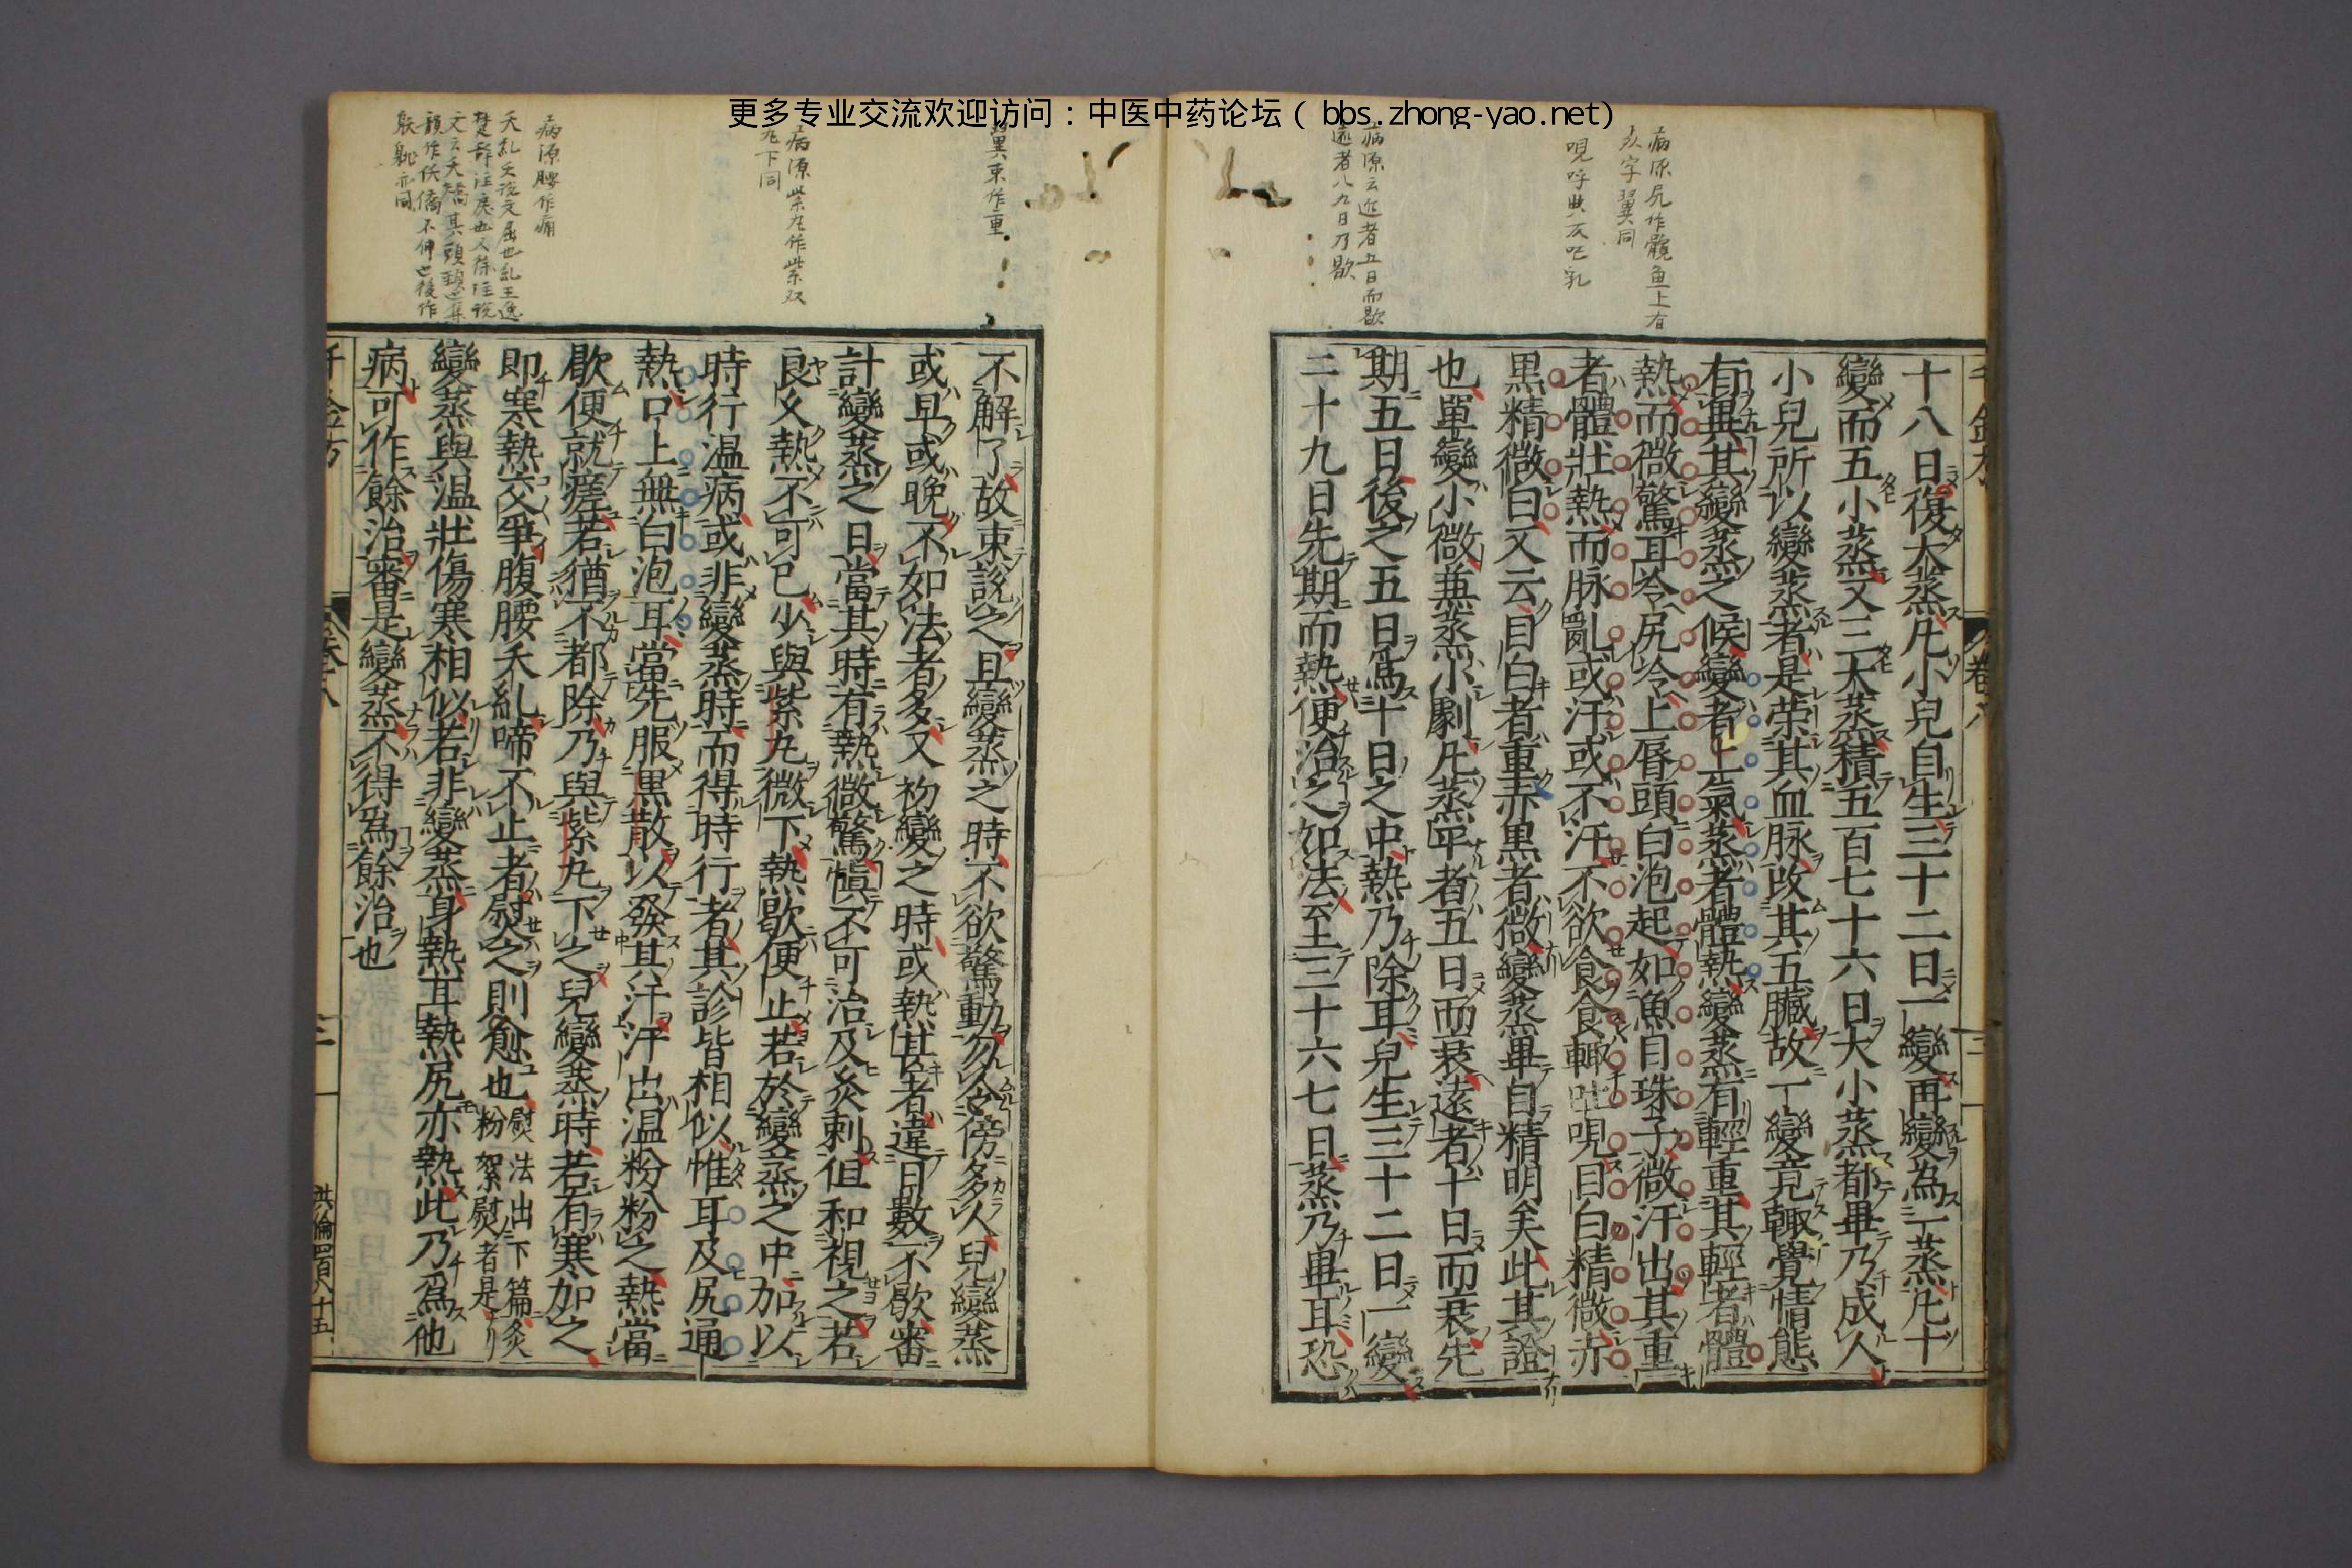 更多专业交流欢迎访问：中医中药论坛（bbs.zhong-yao.net）
病源尻作髖魚上有
炎字翼同
哯呼典反吐乳
病源云近者五日而歇
遠者八九日乃歇
十八日復大蒸凡小兒自生三十二日一變再變為一蒸凡十
變而五小蒸又三大蒸積五百七十六日大小蒸都畢乃成人
小兒所以變蒸者是榮其血脉改其五臟故一變竟輙覺情態
有異其變蒸之候變者上氣蒸者體熱變蒸有輕重其輕者體
熱而微驚耳冷尻冷上唇頭白泡起如魚目珠子微汗出其重
者體壯熱而脉亂或汗或不汗不欲食食輙吐哯目白精微赤
黒精微白又云目白者重赤黒者微變蒸畢自精明矣此其證
也單變小微兼蒸小劇凡蒸平者五日而衰遠者十日而衰先
期五日後之五日為十日之中熱乃除耳兒生三十二日一變
二十九日先期而熱便治之如法至三十六七日蒸乃畢耳恐
不解了故重說之且變蒸之時不欲驚動勿令傍多人兒變蒸
或早或晚不如法者多又初變之時或熱甚者違日數不歇審
計變蒸之日當其時有熱微驚慎不可治及灸刺但和視之若
良久熱不可已少與紫丸微下熱歇便止若於變蒸之中加以
時行温病或非變蒸時而得時行者其診皆相似惟耳及尻通
熱口上無白泡耳當先服黒散以發其汗汗出温粉粉之熱當
歇便就瘥若猶不都除乃與紫丸下之兒變蒸時若有寒加之
即寒熱交爭腹腰夭糺啼不止者熨之則愈也
熨法出下篇灸
粉絮熨者是
變蒸與温壯傷寒相似若非變蒸身熱耳熱尻亦熱此乃為他
病可作餘治審是變蒸不得為餘治也
翼束作重
病源紫丸作紫双
丸下同
病源腰作痛
卷八
三